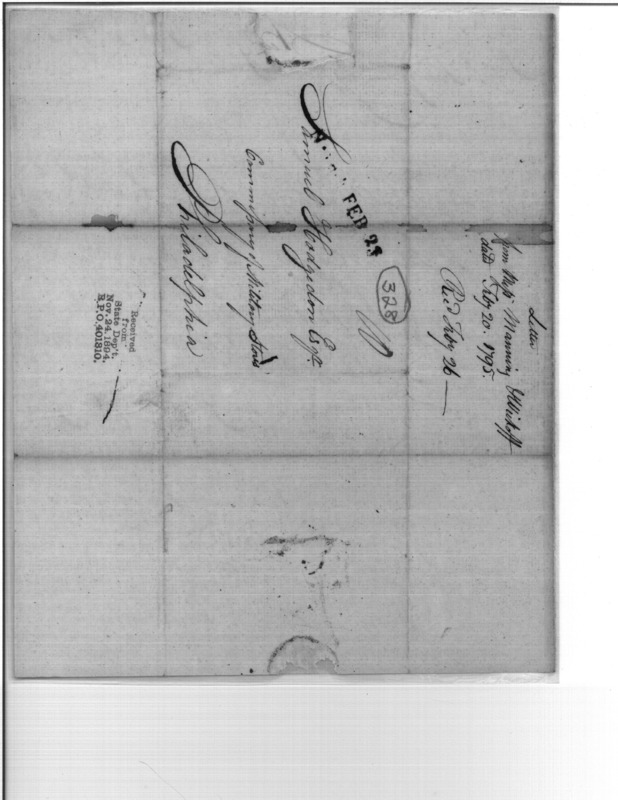 Letter
from Mess^rs Manning &
dated Feby 20. 1795.
Rec'd Feby 26
328
FEB 23
Samuel Hodgdon Esq^r
Commissary of Military Stores
Philadelphia
Received
from
State Dep't.
Nov. 24, 1894.
R.P.O. 401810.